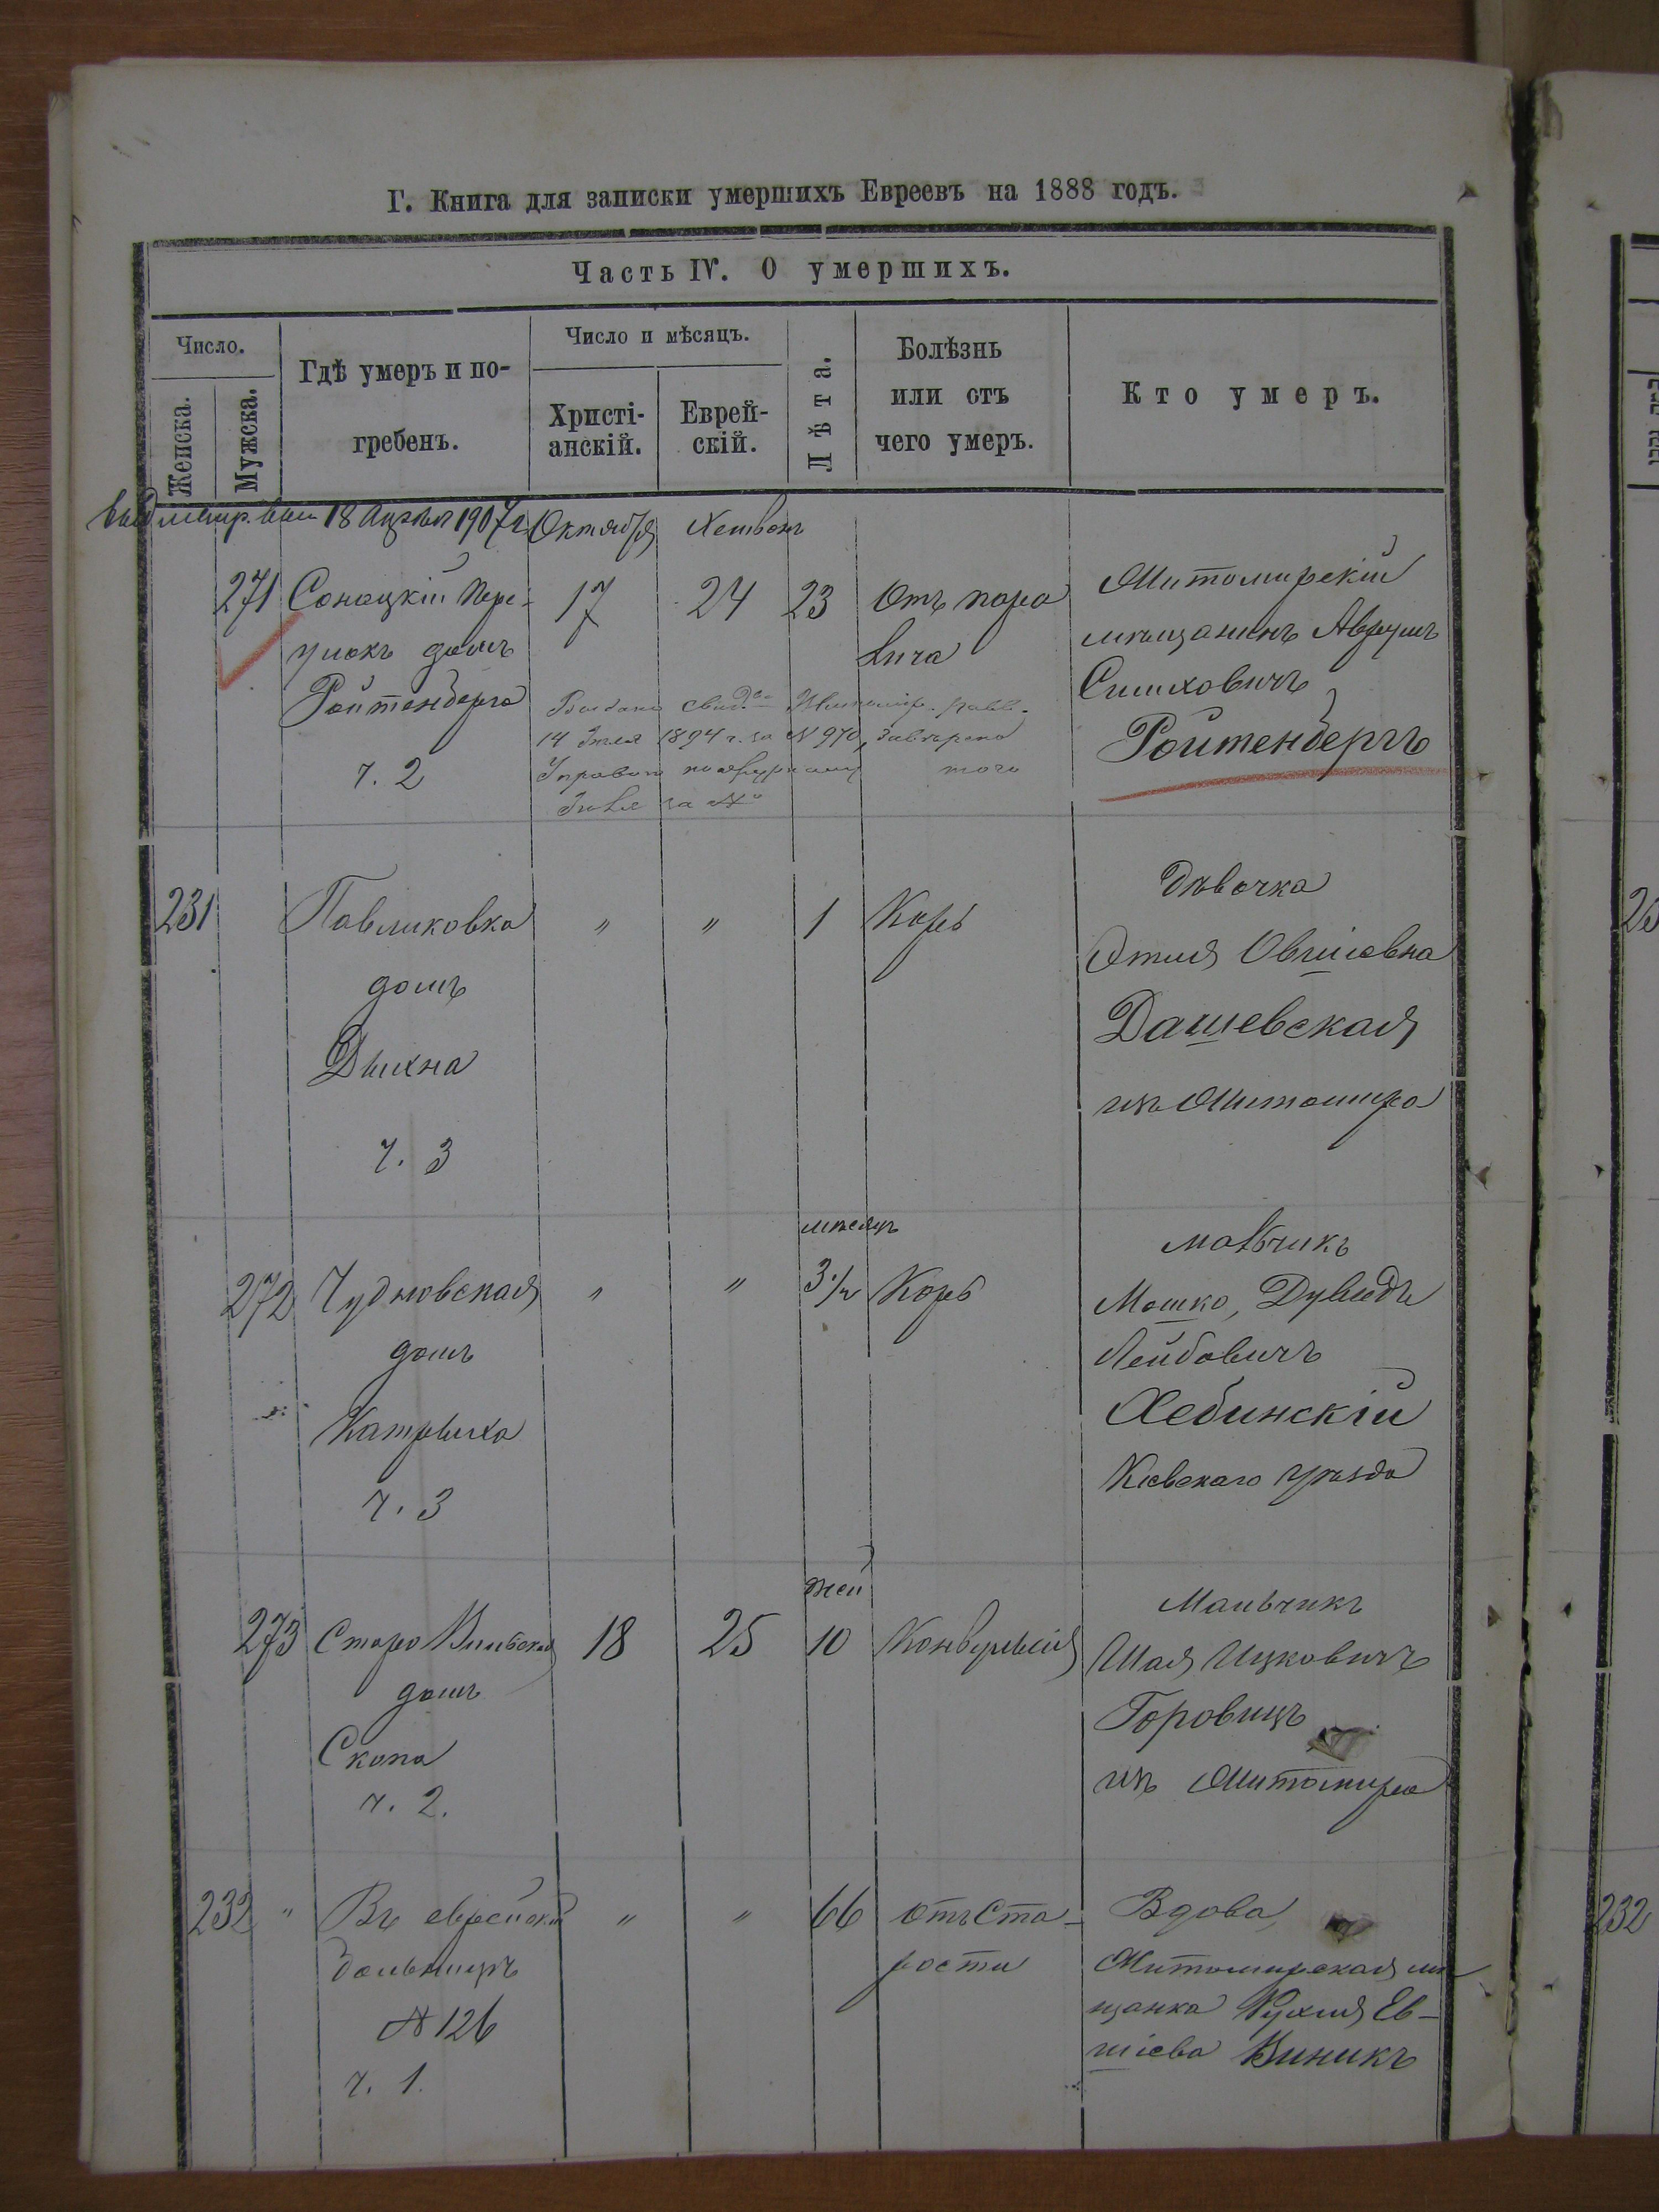 Г. Книга для записки умершихъ Евреевъ на 1888 годъ.
Часть IV. О умершихъ.
Число.
Женска.
Мужска.
Гдѣ умеръ и по-
гребенъ.
Число и мѣсяцъ.
Христі-
анскій.
Еврей-
скій.
Лѣта.
Болѣзнь
или отъ
чего умеръ.
Кто умеръ.
18 Апрѣля 1907 г.
Октября
Хешвонъ
271
Сонацкій пере-
улокъ домъ
Ройтенберга
ч. 2
17
24
23
Отъ пара
лича
Житомирскій
мѣщанинъ Аврумъ
Симховичъ
Ройтенбергъ
14 Іюля 1894 г. за N 970,
того
Іюля за №
231
Павликовка
домъ
Дыхна
ч. 3
"
"
1
Корь
Дѣвочка
Этля Овшіевна
Дашевская
изъ Житомира
272
Чудновская
домъ
ч. 3
"
"
мѣсяцъ
3 1/2
Корь
мальчикъ
Мошко, Дувидъ
Лейбовичъ
Хебинскій
Кіевскаго уѣзда
273
Старо Вильская
домъ
Скопа
ч. 2.
18
25
дней
10
Конвульсія
Мальчикъ
Шая Ицковичъ
Горовицъ
изъ Житомира
232
"
Въ еврейской
больницѣ
№ 126
ч. 1.
"
"
66
отъ ста-
рости
Вдова
Житомирская мѣ-
щанка Рухля Ев-
шіева Виникъ
232